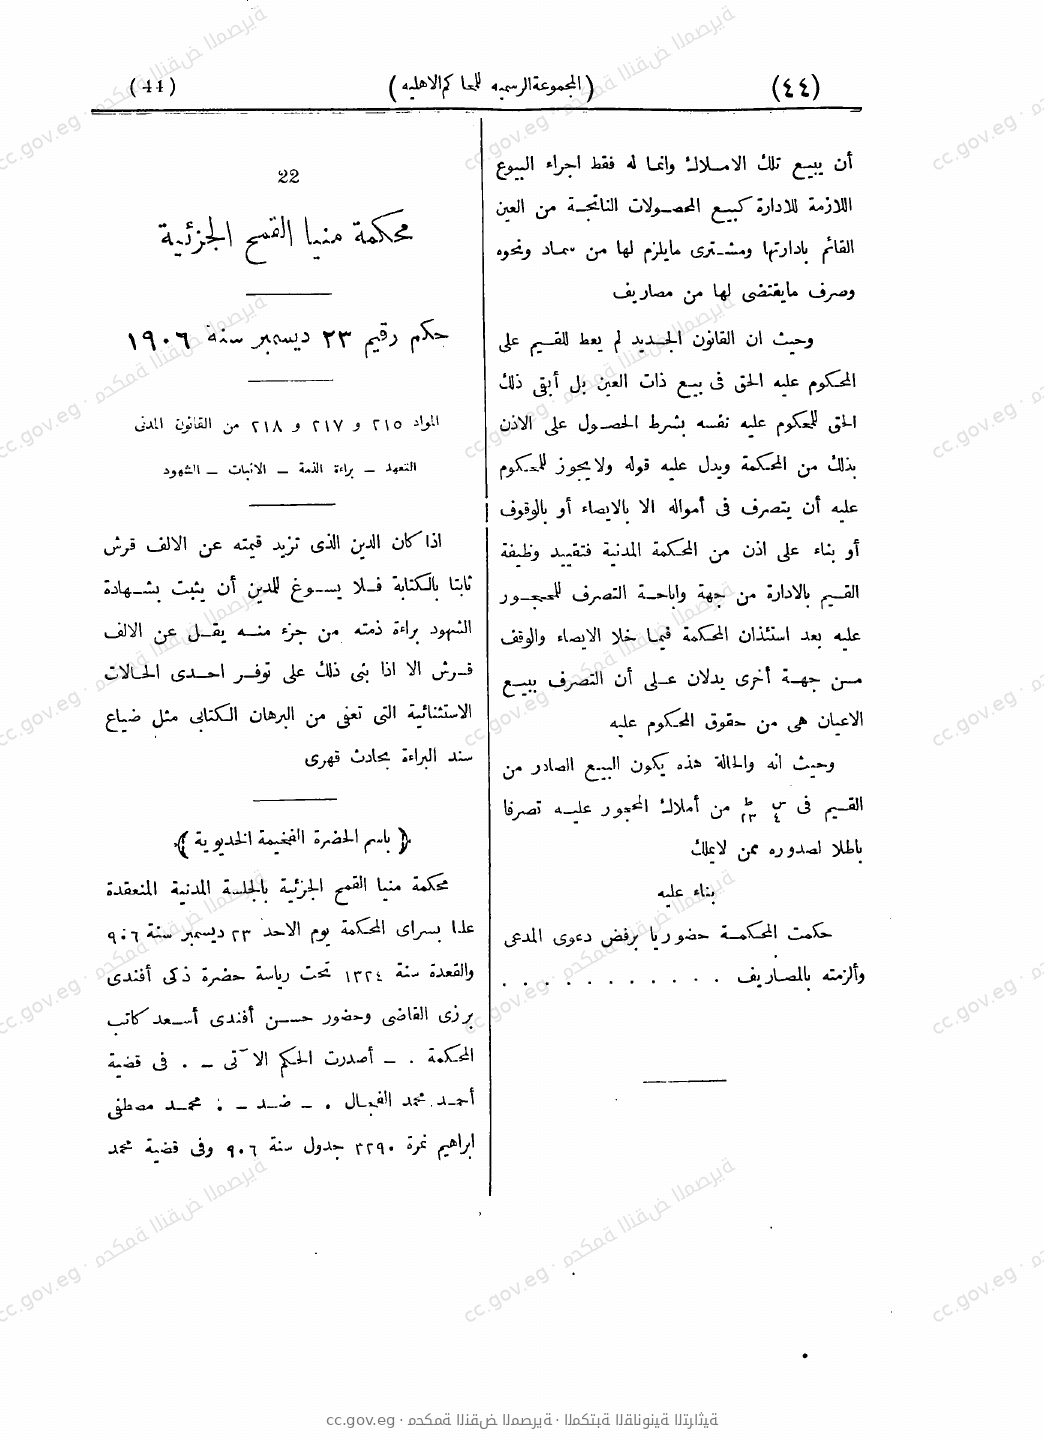 (٤٤) (المجموعة الرسميه للمحاكم الاهليه) (44)
أن يبيع تلك الاملاك وانما له فقط اجراء البيوع
اللازمة للادارة كبيع المحصولات الناتجة من العين
القائم بادارتها ومشترى مايلزم لها من سماد ونحوه
وصرف مايقتضى لها من مصاريف
وحيث ان القانون الجديد لم يعط للقيم على
المحكوم عليه الحق فى بيع ذات العين بل أبقى ذلك
الحق للمحكوم عليه نفسه بشرط الحصول على الاذن
بذلك من المحكمة ويدل عليه قوله ولايجوز للمحكوم
عليه أن يتصرف فى أمواله الا بالايصاء أو بالوقوف
أو بناء على اذن من المحكمة المدنية فتقييد وظيفة
القيم بالادارة من جهة واباحة التصرف للمحجور
عليه بعد استئذان المحكمة فيما خلا الايصاء والوقف
من جهة أخرى يدلان على أن التصرف ببيع
الاعيان هى من حقوق المحكوم عليه
وحيث انه والحالة هذه يكون البيع الصادر من
القيم فى س ٤ ط ٢٣ من أملاك المحجور عليه تصرفا
باطلا لصدوره ممن لايملك
بناء عليه
حكمت المحكمة حضوريا برفض دعوى المدعى
وألزمته بالمصاريف . . . . . . . . . .
22
محكمة منيا القمح الجزئية
حكم رقيم ٢٣ ديسمبر سنة ١٩٠٦
المواد ٢١٥ و ٢١٧ و ٢١٨ من القانون المدنى
التعهد – براءة الذمة – الاثبات – الشهود
اذا كان الدين الذى تزيد قيمته عن الالف قرش
ثابتا بالكتابة فلا يسوغ للمدين أن يثبت بشهادة
الشهود براءة ذمته من جزء منه يقل عن الالف
قرش الا اذا بنى ذلك على توفر احدى الحالات
الاستثنائية التى تعفى من البرهان الكتابى مثل ضياع
سند البراءة بحادث قهرى
(باسم الحضرة الفخيمة الخديوية)
محكمة منيا القمح الجزئية بالجلسة المدنية المنعقدة
علنا بسراى المحكمة يوم الاحد ٢٣ ديسمبر سنة ٩٠٦
والقعدة سنة ١٣٢٤ تحت رياسة حضرة ذكى أفندى
برزى القاضى وحضور حسن أفندى أسعد كاتب
المحكمة . – أصدرت الحكم الآتى – . فى قضية
أحمد محمد الفحال . – ضد – : محمد مصطفى
ابراهيم نمرة ٢٢٩٠ جدول سنة ٩٠٦ وفى قضية محمد
cc.gov.eg · محكمة النقض المصرية · المكتبة القانونية التراثية